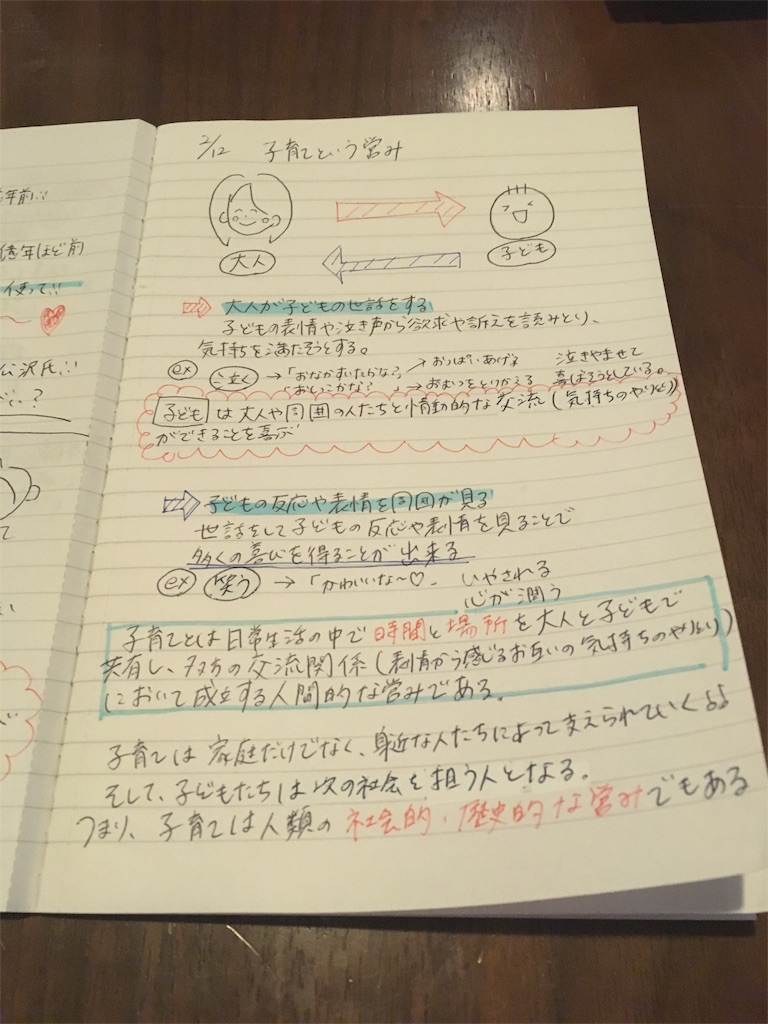 年前!!
億年ほど前
使って!!
公沢氏!!
2/12 子育てという営み
大人
子ども
大人が子どもの世話をする
子どもの表情や泣き声から欲求や訴えを読みとり、
気持ちを満たそうとする。
ex 泣く →「おなかすいたかな?」→おっぱいあげる 泣きやませて
「おしっこかな?」→おむつをとりかえる 喜ばそうとしている。
子ども は大人や周囲の人たちと情動的な交流(気持ちのやりとり)
ができることを喜ぶ
子どもの反応や表情を周囲が見る
世話をして子どもの反応や表情を見ることで
多くの喜びを得ることが出来る
ex 笑う →「かわいいな〜♡」 いやされる
心が潤う
子育てとは日常生活の中で時間と場所を大人と子どもで
共有し、双方の交流関係(表情から感じるお互いの気持ちのやりとり)
において成立する人間的な営みである。
子育ては家庭だけでなく、身近な人たちによって支えられていく
そして、子どもたちは次の社会を担う人となる。
つまり、子育ては人類の社会的・歴史的な営みでもある